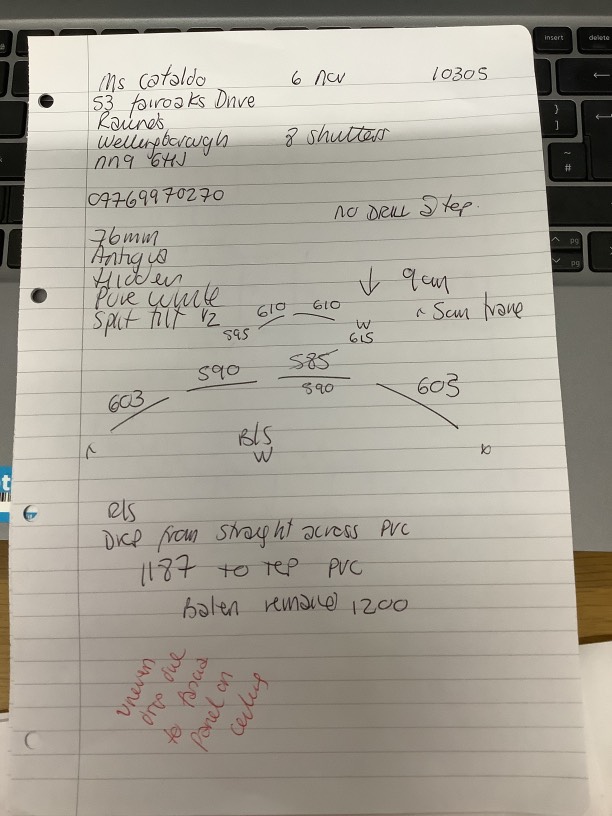 Ms Cataldo 6 Nov 10305
53 fairoaks Drive
Raunds
Wellingborough 8 shutters
nn9 6HU
07769970270
NO DRILL Step.
76mm
Antigua
Hidden
Pure white
Split tilt 1/2
↓ 9cm
5cm frame
610 610
595 W
615
590 585
603 590 603
B/S
W
B/S
Drop from straight across PVC
1187 to top PVC
Baten remove 1200
uneven
drop due
to
Panel on
ceiling
insert
delete
pg
pg